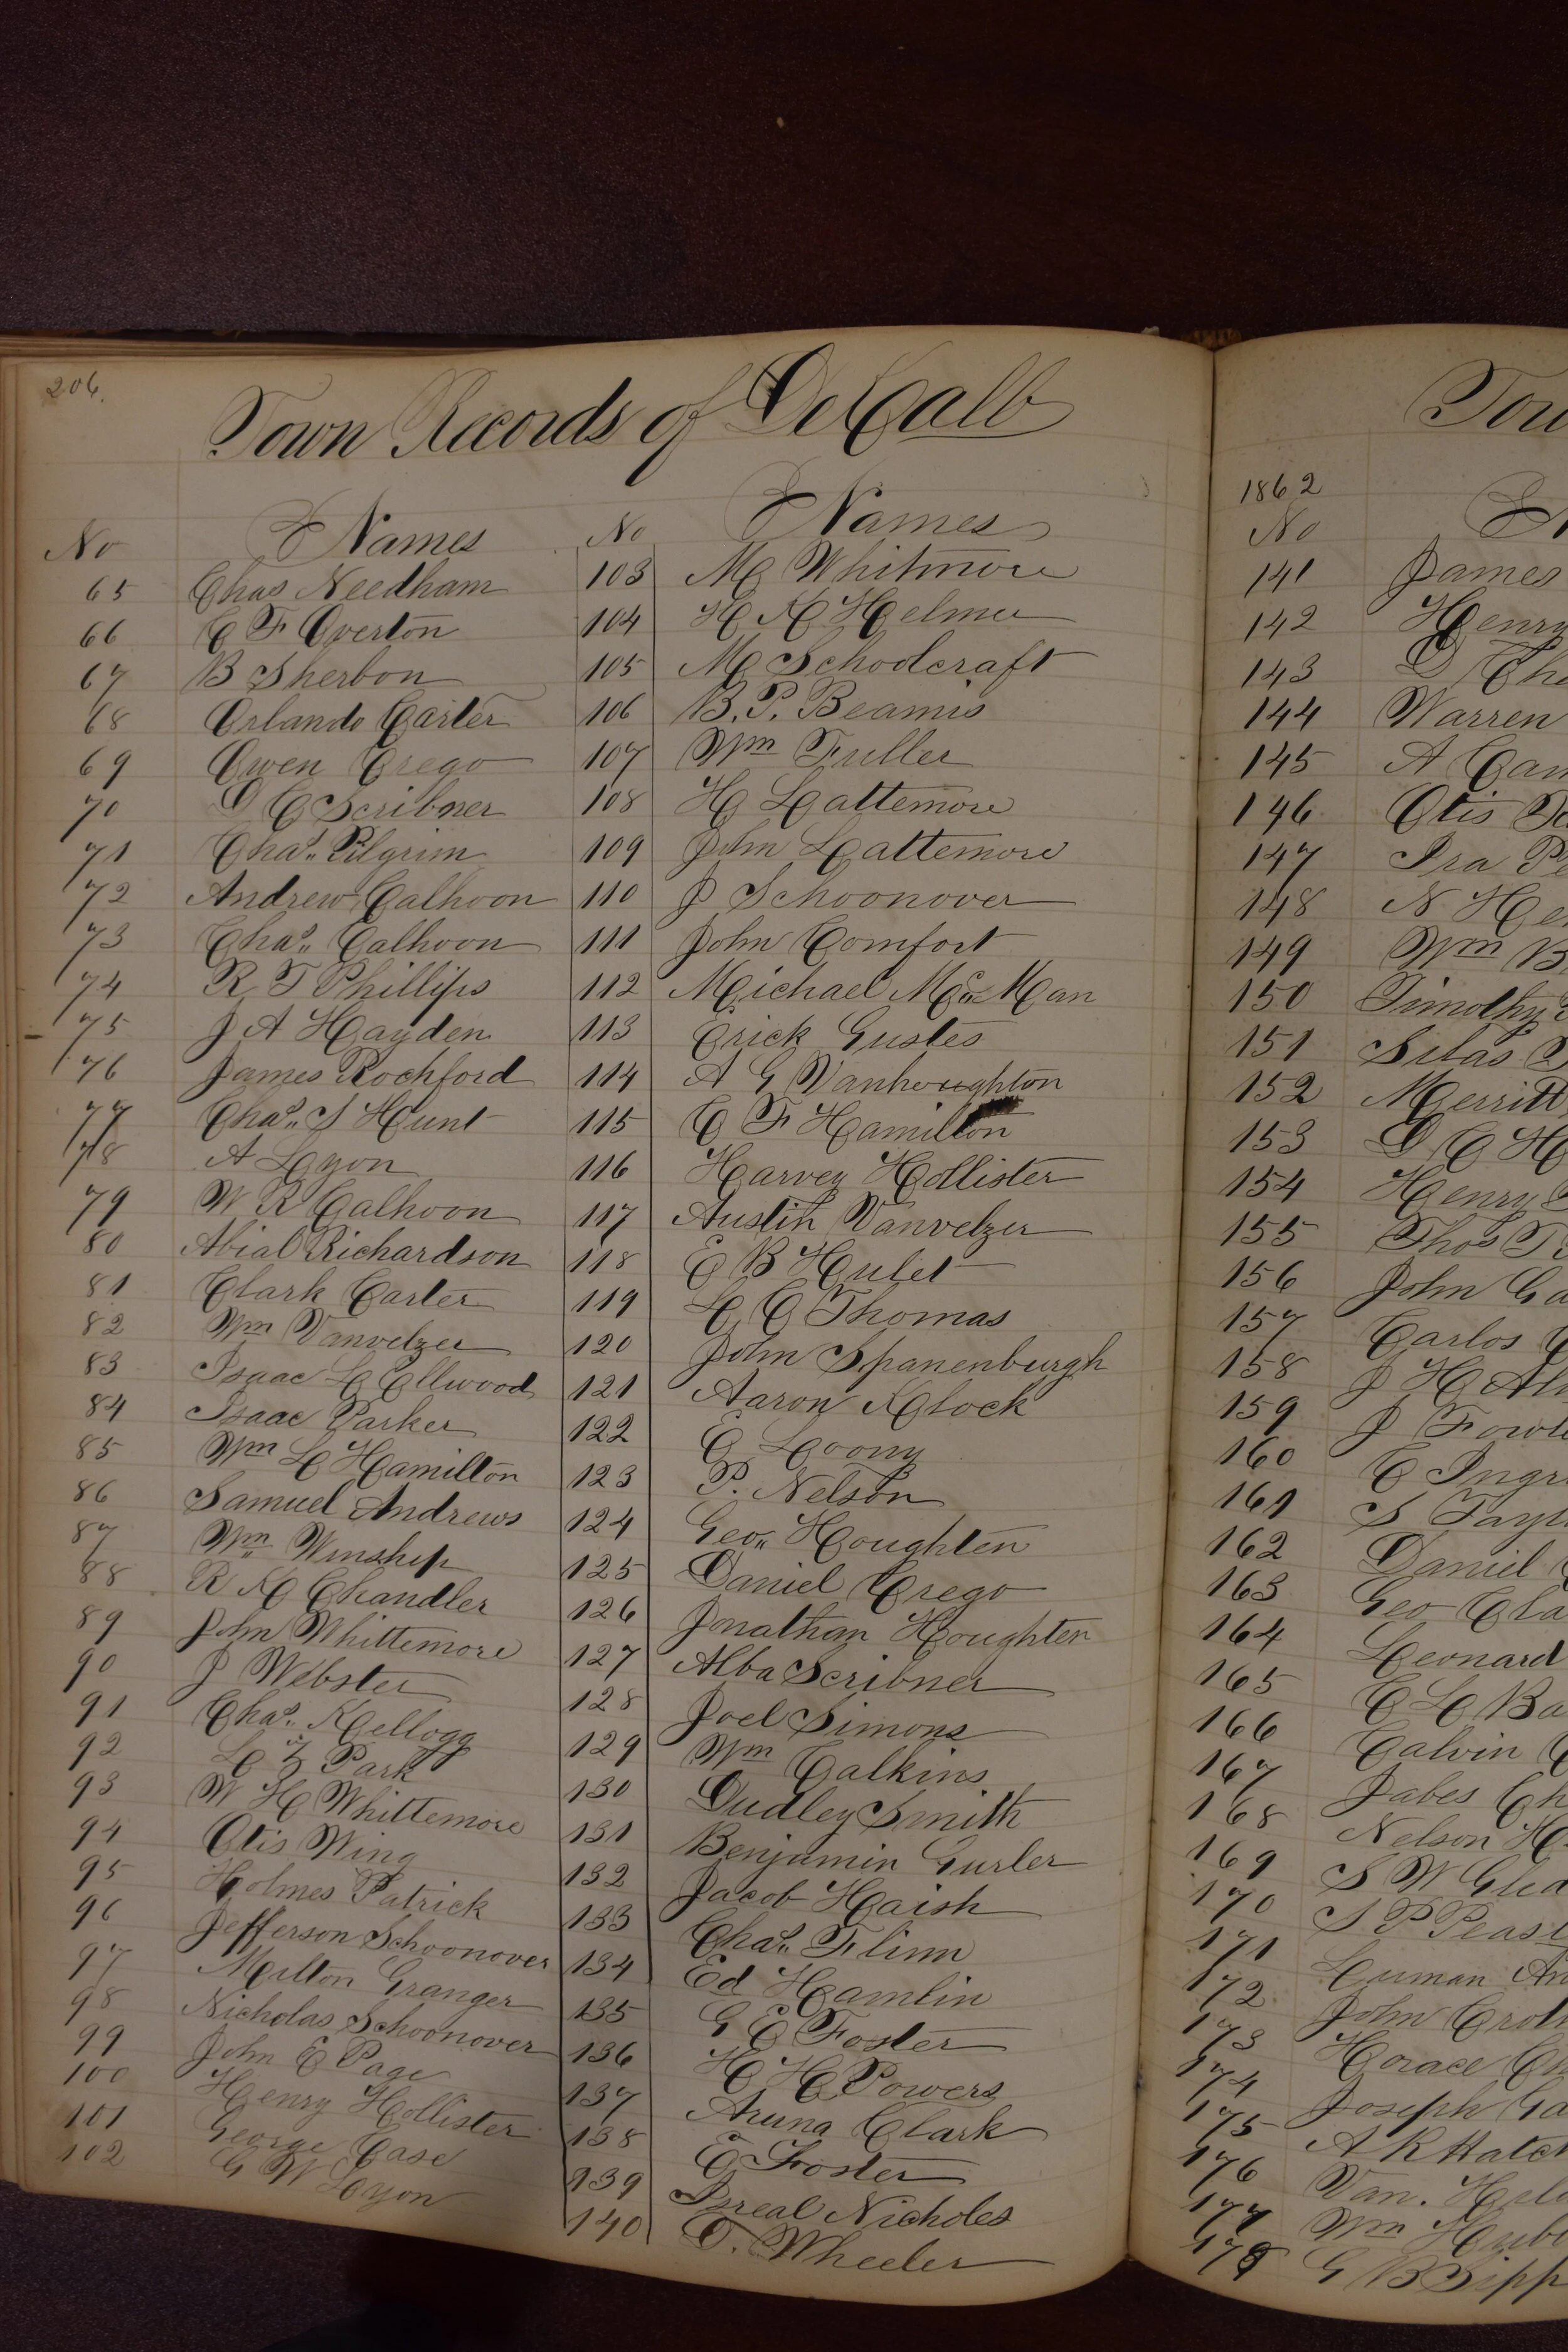 206.
Town Records of DeKalb
No Names
65 Chas Needham
66 C F Overton
67 B Sherbon
68 Orlando Carter
69 Owen Crego
70 D C Scribner
71 Chas. Pilgrim
72 Andrew Calhoon
73 Chas. Calhoon
74 R T Phillips
75 J A Hayden
76 James Rochford
77 Chas. S Hunt
78 A Lyon
79 W R Calhoon
80 Abial Richardson
81 Clark Carter
82 Wm Vanvelzer
83 Isaac L Ellwood
84 Isaac Parker
85 Wm L Hamilton
86 Samuel Andrews
87 Wm Winship
88 R K Chandler
89 John Whittemore
90 J Webster
91 Chas. Kellogg
92 L Z Park
93 W H Whittemore
94 Otis Wing
95 Holmes Patrick
96 Jefferson Schoonover
97 Milton Granger
98 Nicholas Schoonover
99 John E Page
100 Henry Hollister
101 George Case
102 G W Lyon
No Names
103 M Whitmore
104 H K Helmer
105 M Schoolcraft
106 B. P. Beamis
107 Wm Fuller
108 H Lattemore
109 John Lattemore
110 J Schoonover
111 John Comfort
112 Michael Mc Man
113 Erick Gustes
114 A G Vanhoughton
115 C F Hamilton
116 Harvey Hollister
117 Austin Vanvelzer
118 E B Hulet
119 L C Thomas
120 John Spanenburgh
121 Aaron Klock
122 E Loony
123 P. Nelson
124 Geo. Houghten
125 Daniel Crego
126 Jonathan Houghten
127 Alba Scribner
128 Joel Simons
129 Wm Calkins
130 Dudley Smith
131 Benjamin Gurler
132 Jacob Haish
133 Chas. Flinn
134 Ed Hamlin
135 G E Foster
136 H H Powers
137 Aruna Clark
138 E Foster
139 Isreal Nicholes
140 T. Wheeler
Tow
1862
No
141 James
142 Henry
143 D Cha
144 Warren
145 A Cam
146 Otis
147 Ira Pe
148 N He
149 Wm B
150 Timothy
151 Silas
152 Merritt
153 D C H
154 Henry
155 Thos T
156 John Ga
157 Carlos
158 J H Al
159 J Fowle
160 E Ingr
161 S Tayl
162 Daniel
163 Geo Cla
164 Leonard
165 C L Ba
166 Calvin
167 Jabes Ch
168 Nelson H
169 S W Glea
170 S P Peas
171 Luman An
172 John Crot
173 Horace Ch
174 Joseph Ga
175 A R Hatch
176 Van. H
177 Wm Hub
178 G B Sipp